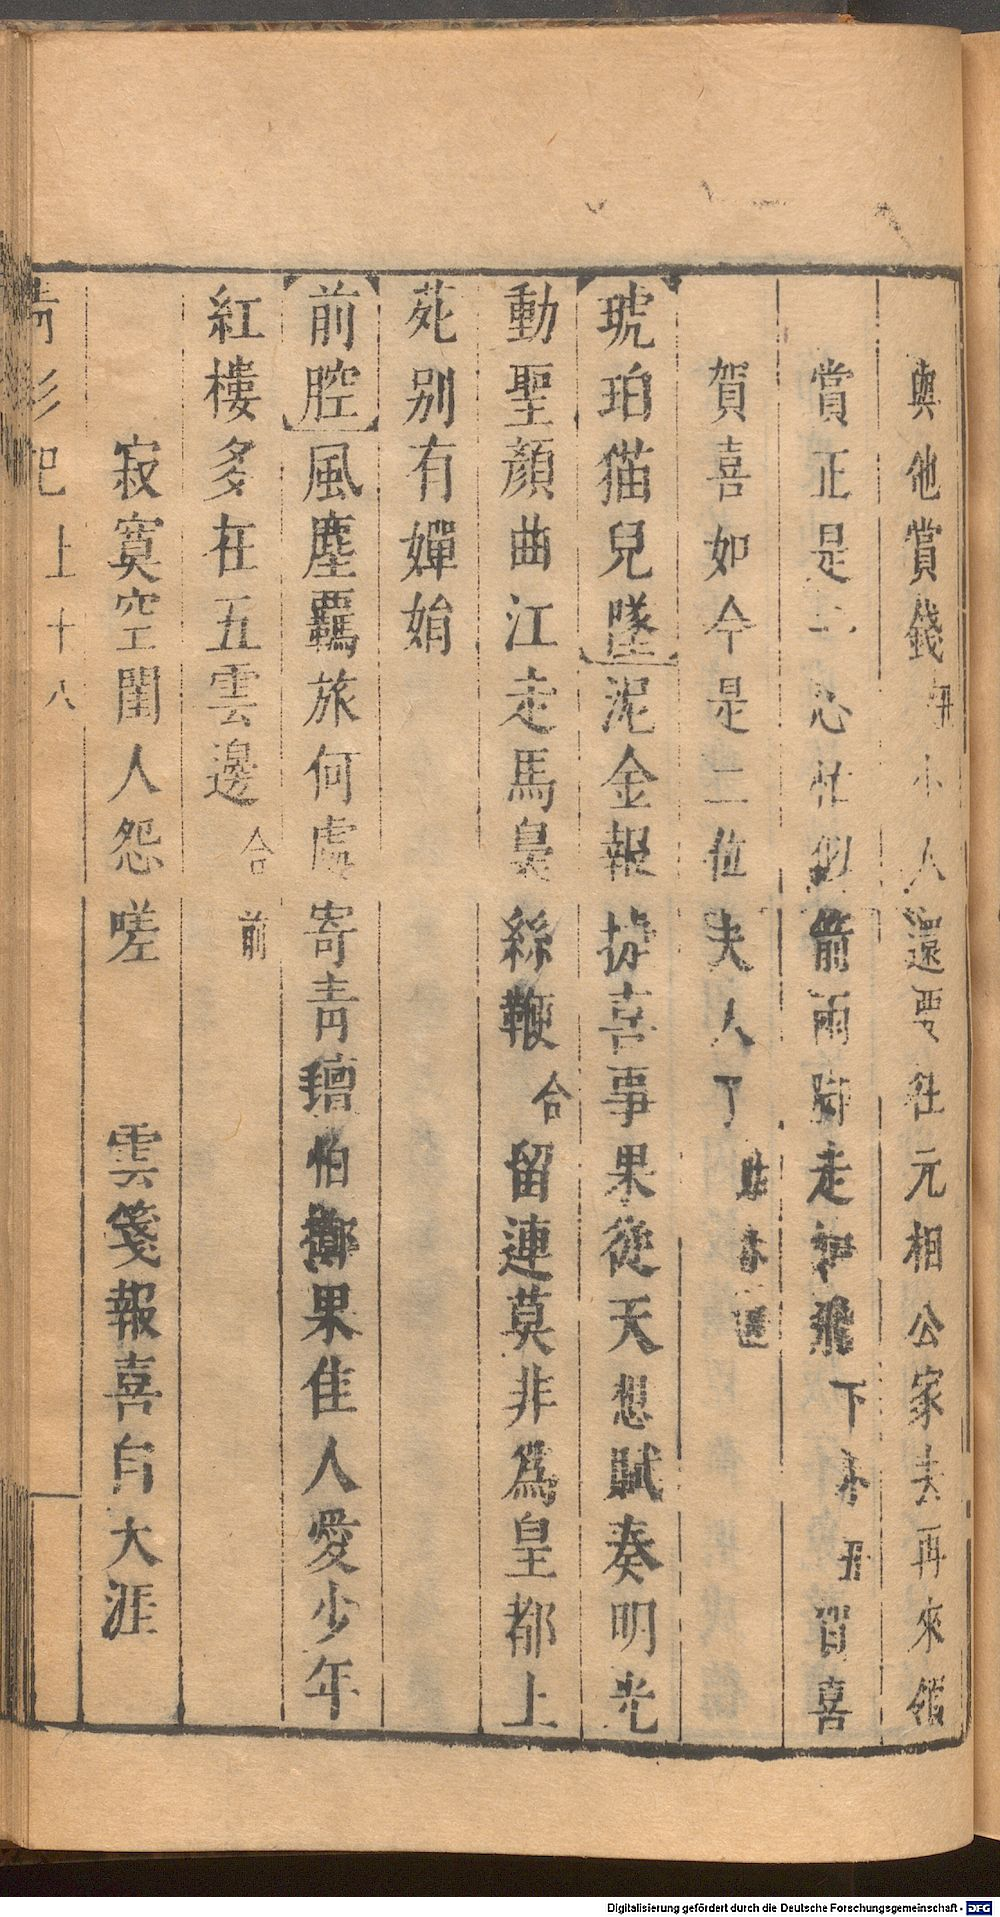 與他賞錢丑小人還要往元相公家去再來領
賞正是心忙似箭雨脚走如飛下介丑賀喜
賀喜如今是二位夫人了貼
琥珀猫兒墜泥金報捷喜事果從天想賦奏明光
動聖顏曲江走馬裊絲鞭合留連莫非爲皇都上
苑别有嬋娟
前腔風塵羈旅何處寄青氊怕擲果佳人愛少年
紅樓多在五雲邊合前
寂寞空閨人怨嗟　雲箋報喜自大涯
青衫記上十八
Digitalisierung gefördert durch die Deutsche Forschungsgemeinschaft - DFG